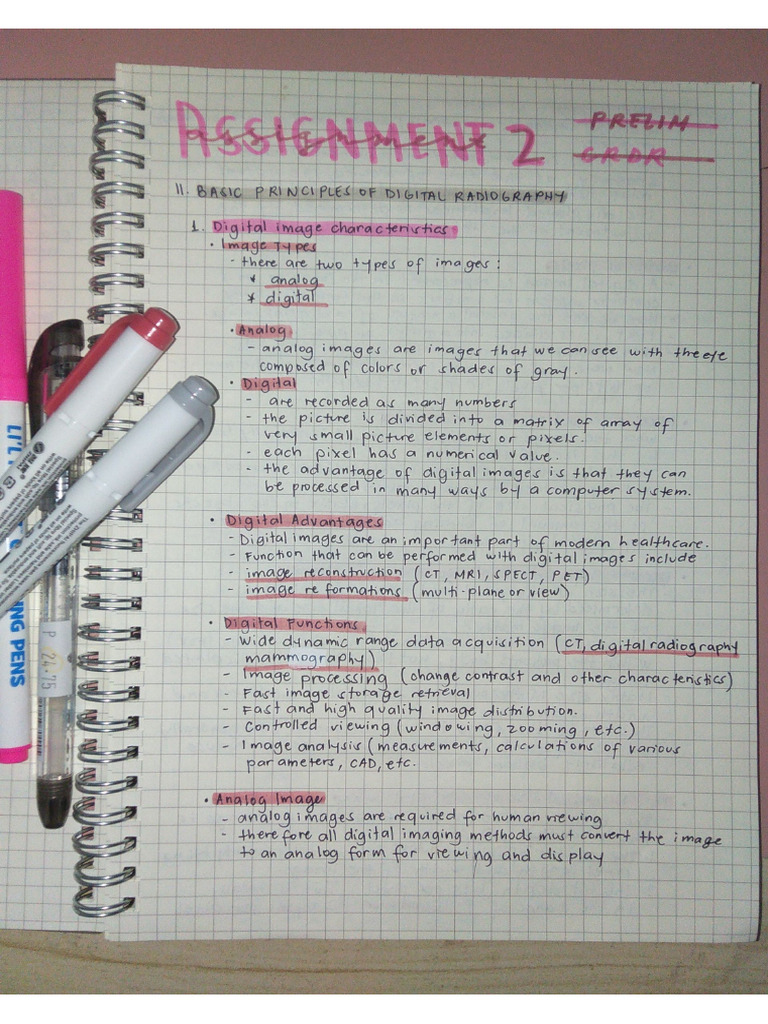 ASSIGNMENT 2
PRELIM
CRDR
II. BASIC PRINCIPLES OF DIGITAL RADIOGRAPHY
1. Digital image characteristics
• Image Types
- there are two types of images:
* analog
* digital
• Analog
- analog images are images that we can see with the eye
composed of colors or shades of gray.
• Digital
- are recorded as many numbers
- the picture is divided into a matrix of array of
very small picture elements or pixels.
- each pixel has a numerical value.
- the advantage of digital images is that they can
be processed in many ways by a computer system.
• Digital Advantages
- Digital images are an important part of modern healthcare.
- Function that can be performed with digital images include
- image reconstruction (CT, MRI, SPECT, PET)
- image re formations (multi-plane or view)
• Digital Functions
- Wide dynamic range data acquisition (CT, digital radiography
mammography)
- Image processing (change contrast and other characteristics)
- Fast image storage retrieval
- Fast and high quality image distribution.
- Controlled viewing (windowing, zooming, etc.)
- Image analysis (measurements, calculations of various
parameters, CAD, etc.
• Analog Image
- analog images are required for human viewing
- therefore all digital imaging methods must convert the image
to an analog form for viewing and display
LI'L
NG PENS
P 24.75